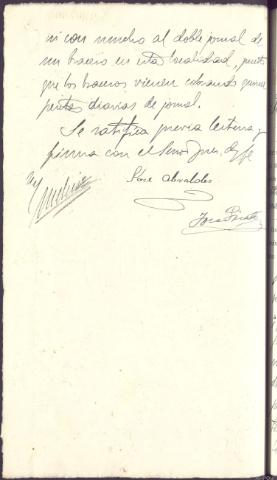 ni con mucho al doble jornal de
un bracero en esta localidad, puesto
que los braceros vienen cobrando quince
pesetas diarias de jornal.
Se ratifica previa lectura y
firma con el Señor Juez, doy fe
José